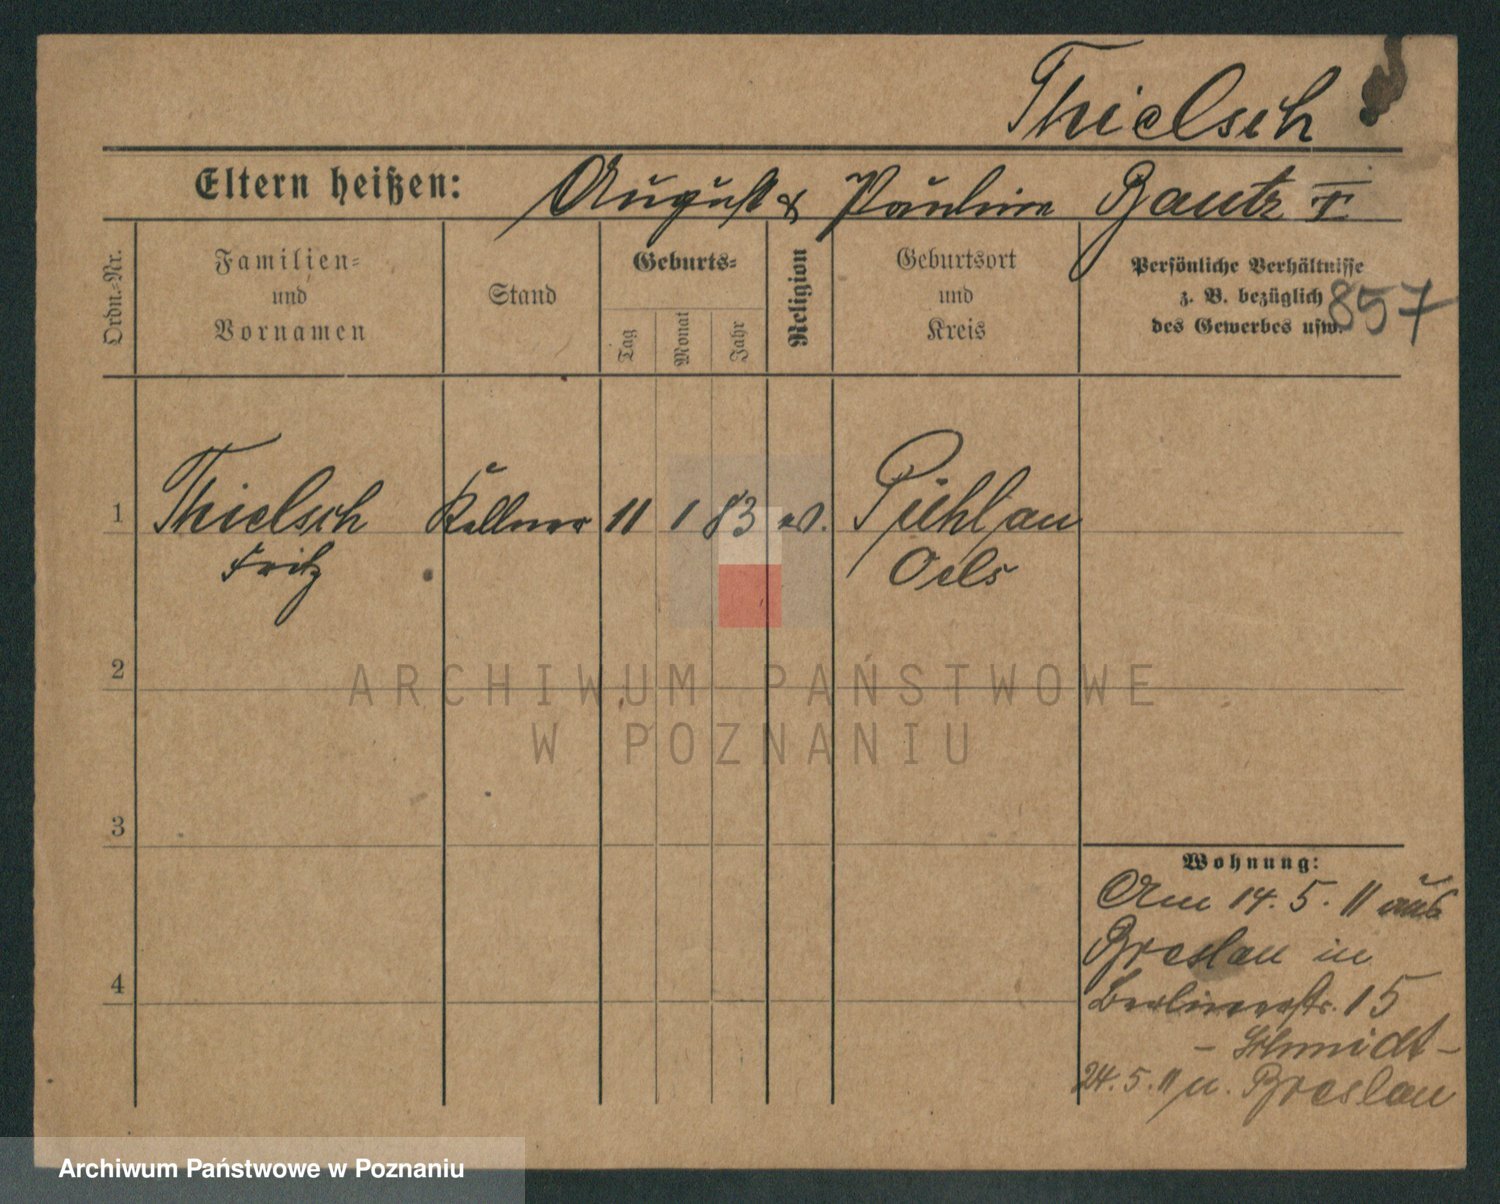 Thielsch
Eltern heißen: August & Pauline Bautz
Ordn.-Nr.
Familien- und Vornamen
Stand
Geburts-
Tag
Monat
Jahr
Religion
Geburtsort und Kreis
Persönliche Verhältnisse
z. B. bezüglich
des Gewerbes usw.
857
1 Thielsch Kellner 11 1 83 ev. Pühlau
Fritz Oels
2
ARCHIWUM PAŃSTWOWE
W POZNANIU
3
Wohnung:
Am 14. 5. 11 aus
Breslau in
4
Berlinerstr. 15
- Schmidt -
24. 5. 11 n. Breslau
Archiwum Państwowe w Poznaniu